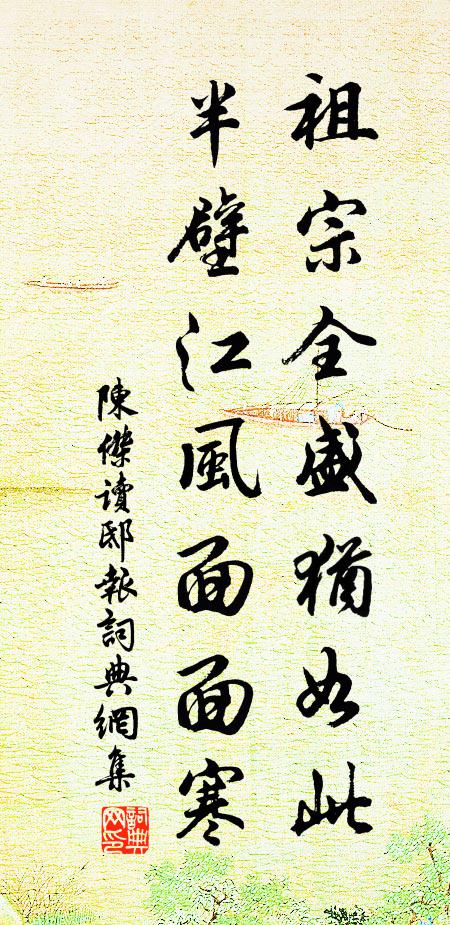 祖宗全盛猶如此
半壁江風面面寒
陳傑讀邸報詞典網集
詞典网印